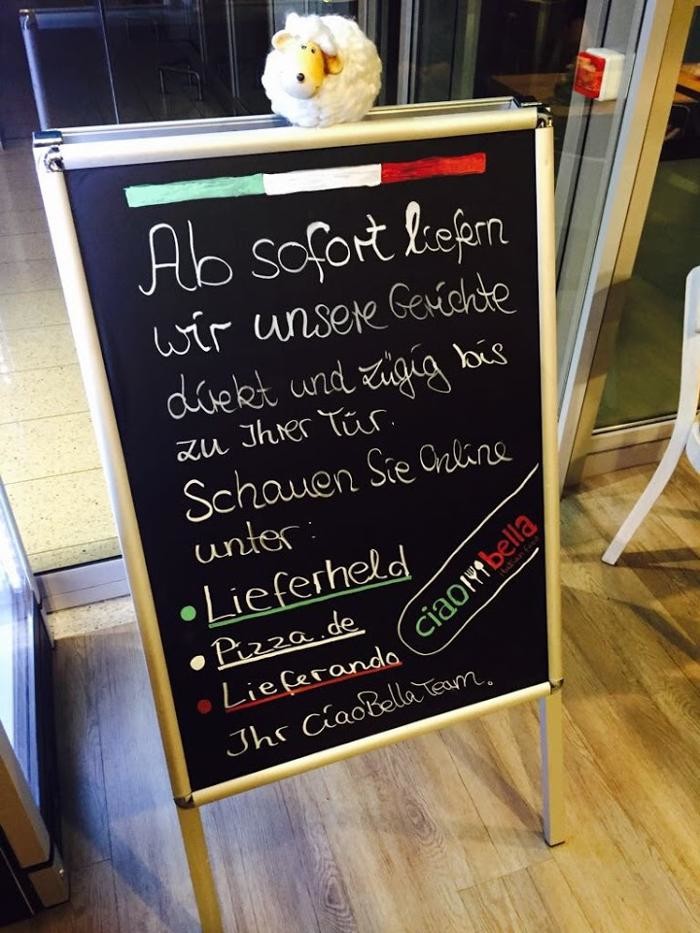 Ab sofort liefern
wir unsere Gerichte
direkt und zügig bis
zu Ihrer Tür.
Schauen Sie Online
unter:
• Lieferheld
• Pizza.de
• Lieferando
ciao bella
Italian food
Ihr CiaoBella Team.